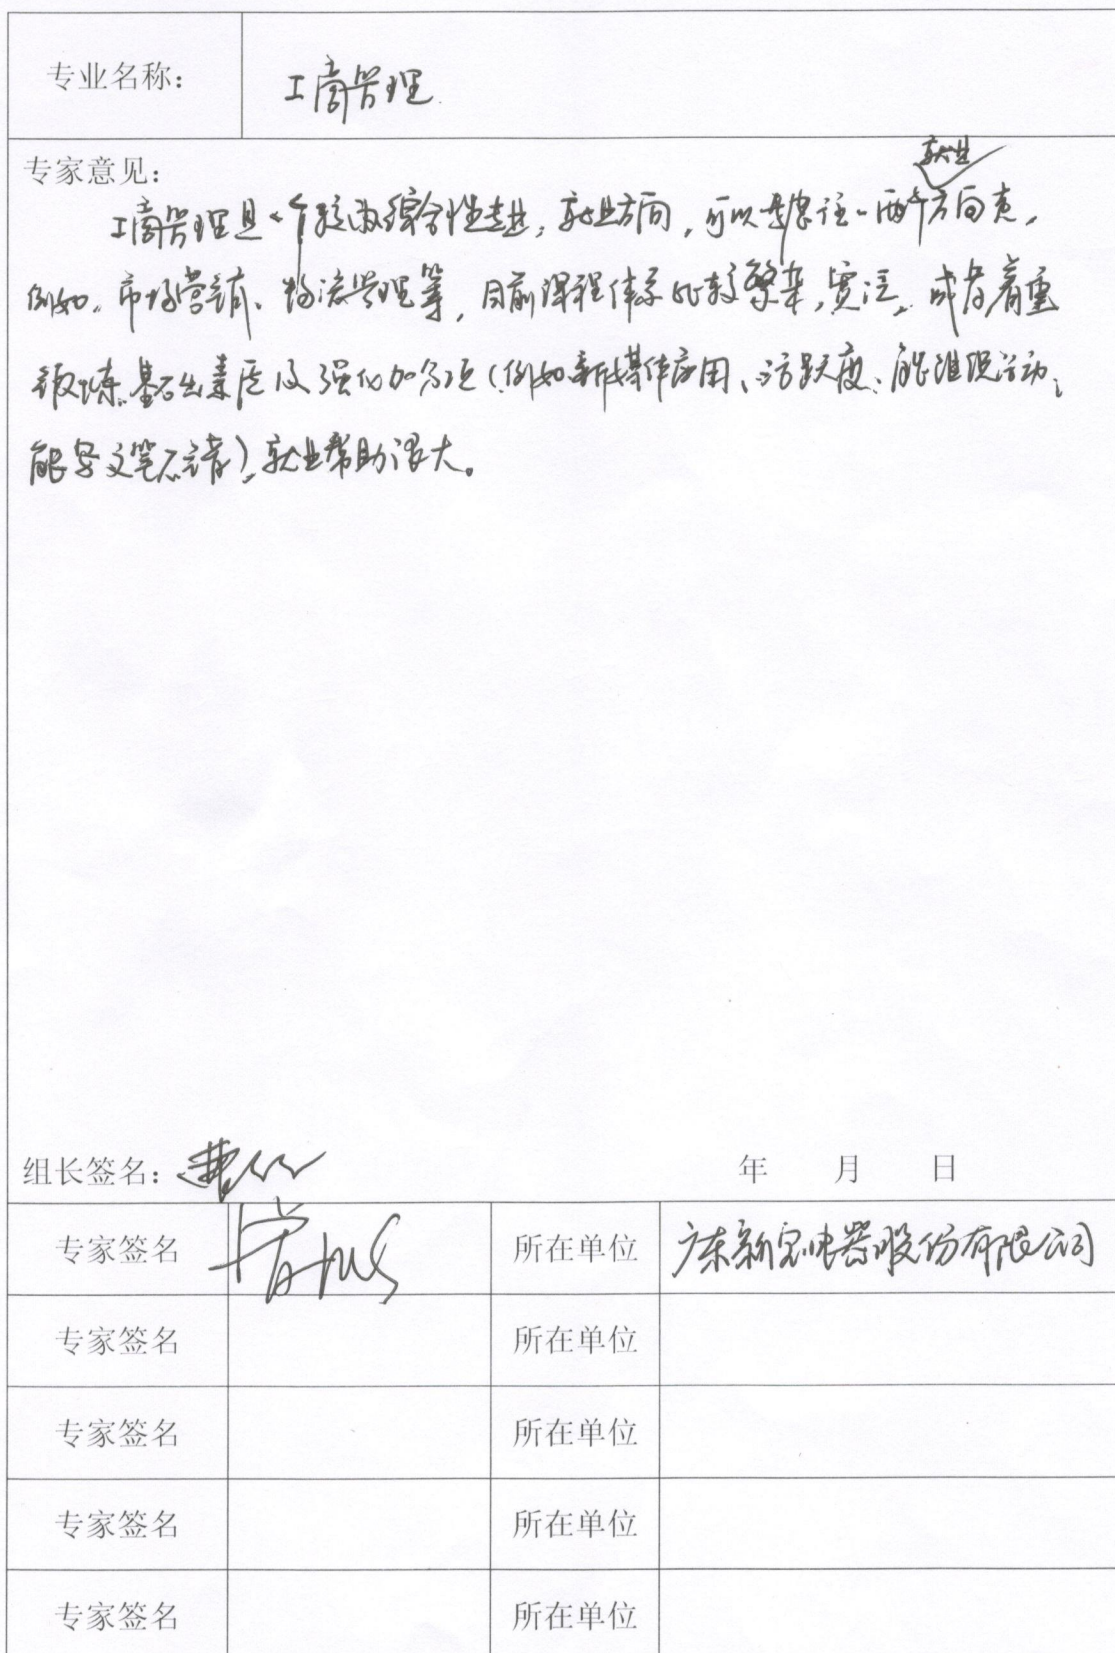 专业名称: 工商管理
就业
专家意见:
工商管理是一个较为综合性专业,就业方向,可以考虑往一两个方向走,
例如,市场营销、物流管理等,目前课程体系比较繁杂,宽泛,或者着重
锻炼基础素质及强化加分项(例如新媒体应用、活跃度、能组织活动、
能写文笔),就业帮助很大。
组长签名: 年 月 日
专家签名 所在单位 广东新宝电器股份有限公司
专家签名 所在单位
专家签名 所在单位
专家签名 所在单位
专家签名 所在单位